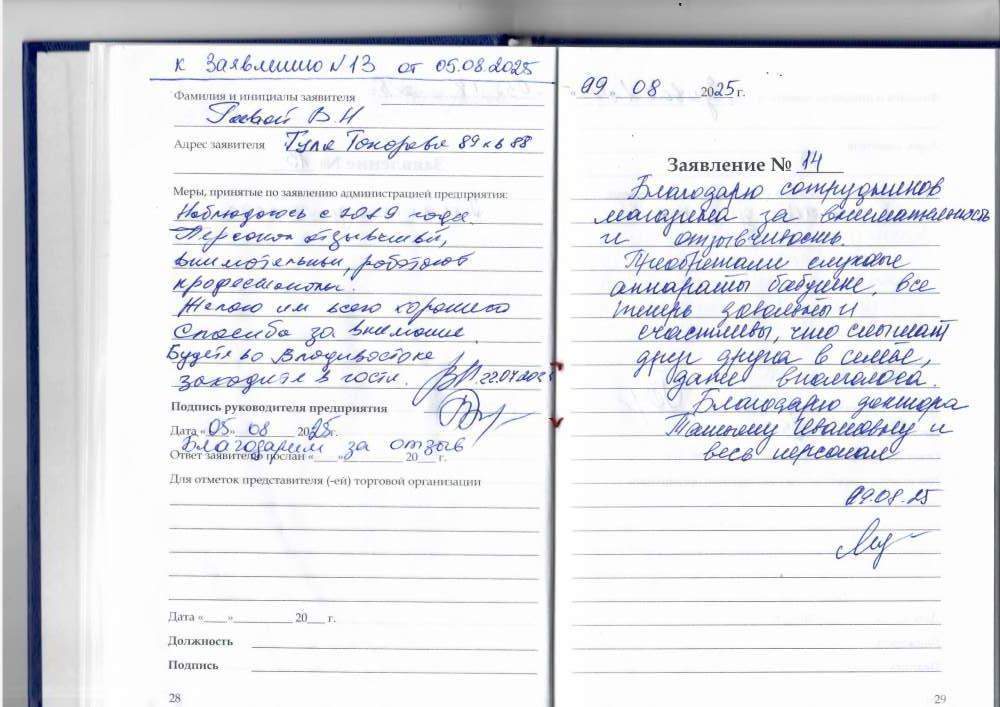 к Заявлению №13 от 05.08.2025
Фамилия и инициалы заявителя
В.Н
Адрес заявителя Тула Токарева 89 кв 88
Меры, принятые по заявлению администрацией предприятия:
Наблюдаюсь с 2019 года.
Персонал отзывчивый,
внимательный, работают
профессионалы.
Желаю им всего хорошего
Спасибо за внимание.
Будете во Владивостоке
заходите в гости. 22.07.2025
Подпись руководителя предприятия
Дата «05» 08 2025г.
Благодарим за отзыв
Ответ заявителю послан «____»__________20___г.
Для отметок представителя (-ей) торговой организации
Дата «____»__________ 20___ г.
Должность
Подпись
28
«09» 08 2025 г.
Заявление № 14
Благодарю сотрудников
магазина за внимательность
и отзывчивость.
Преобретали слуховые
аппараты бабушке, все
теперь довольны и
счастливы, что слышат
друг друга в семье,
даже вполголоса.
Благодарю доктора
Татьяну Ивановну и
весь персонал
09.08.25
29